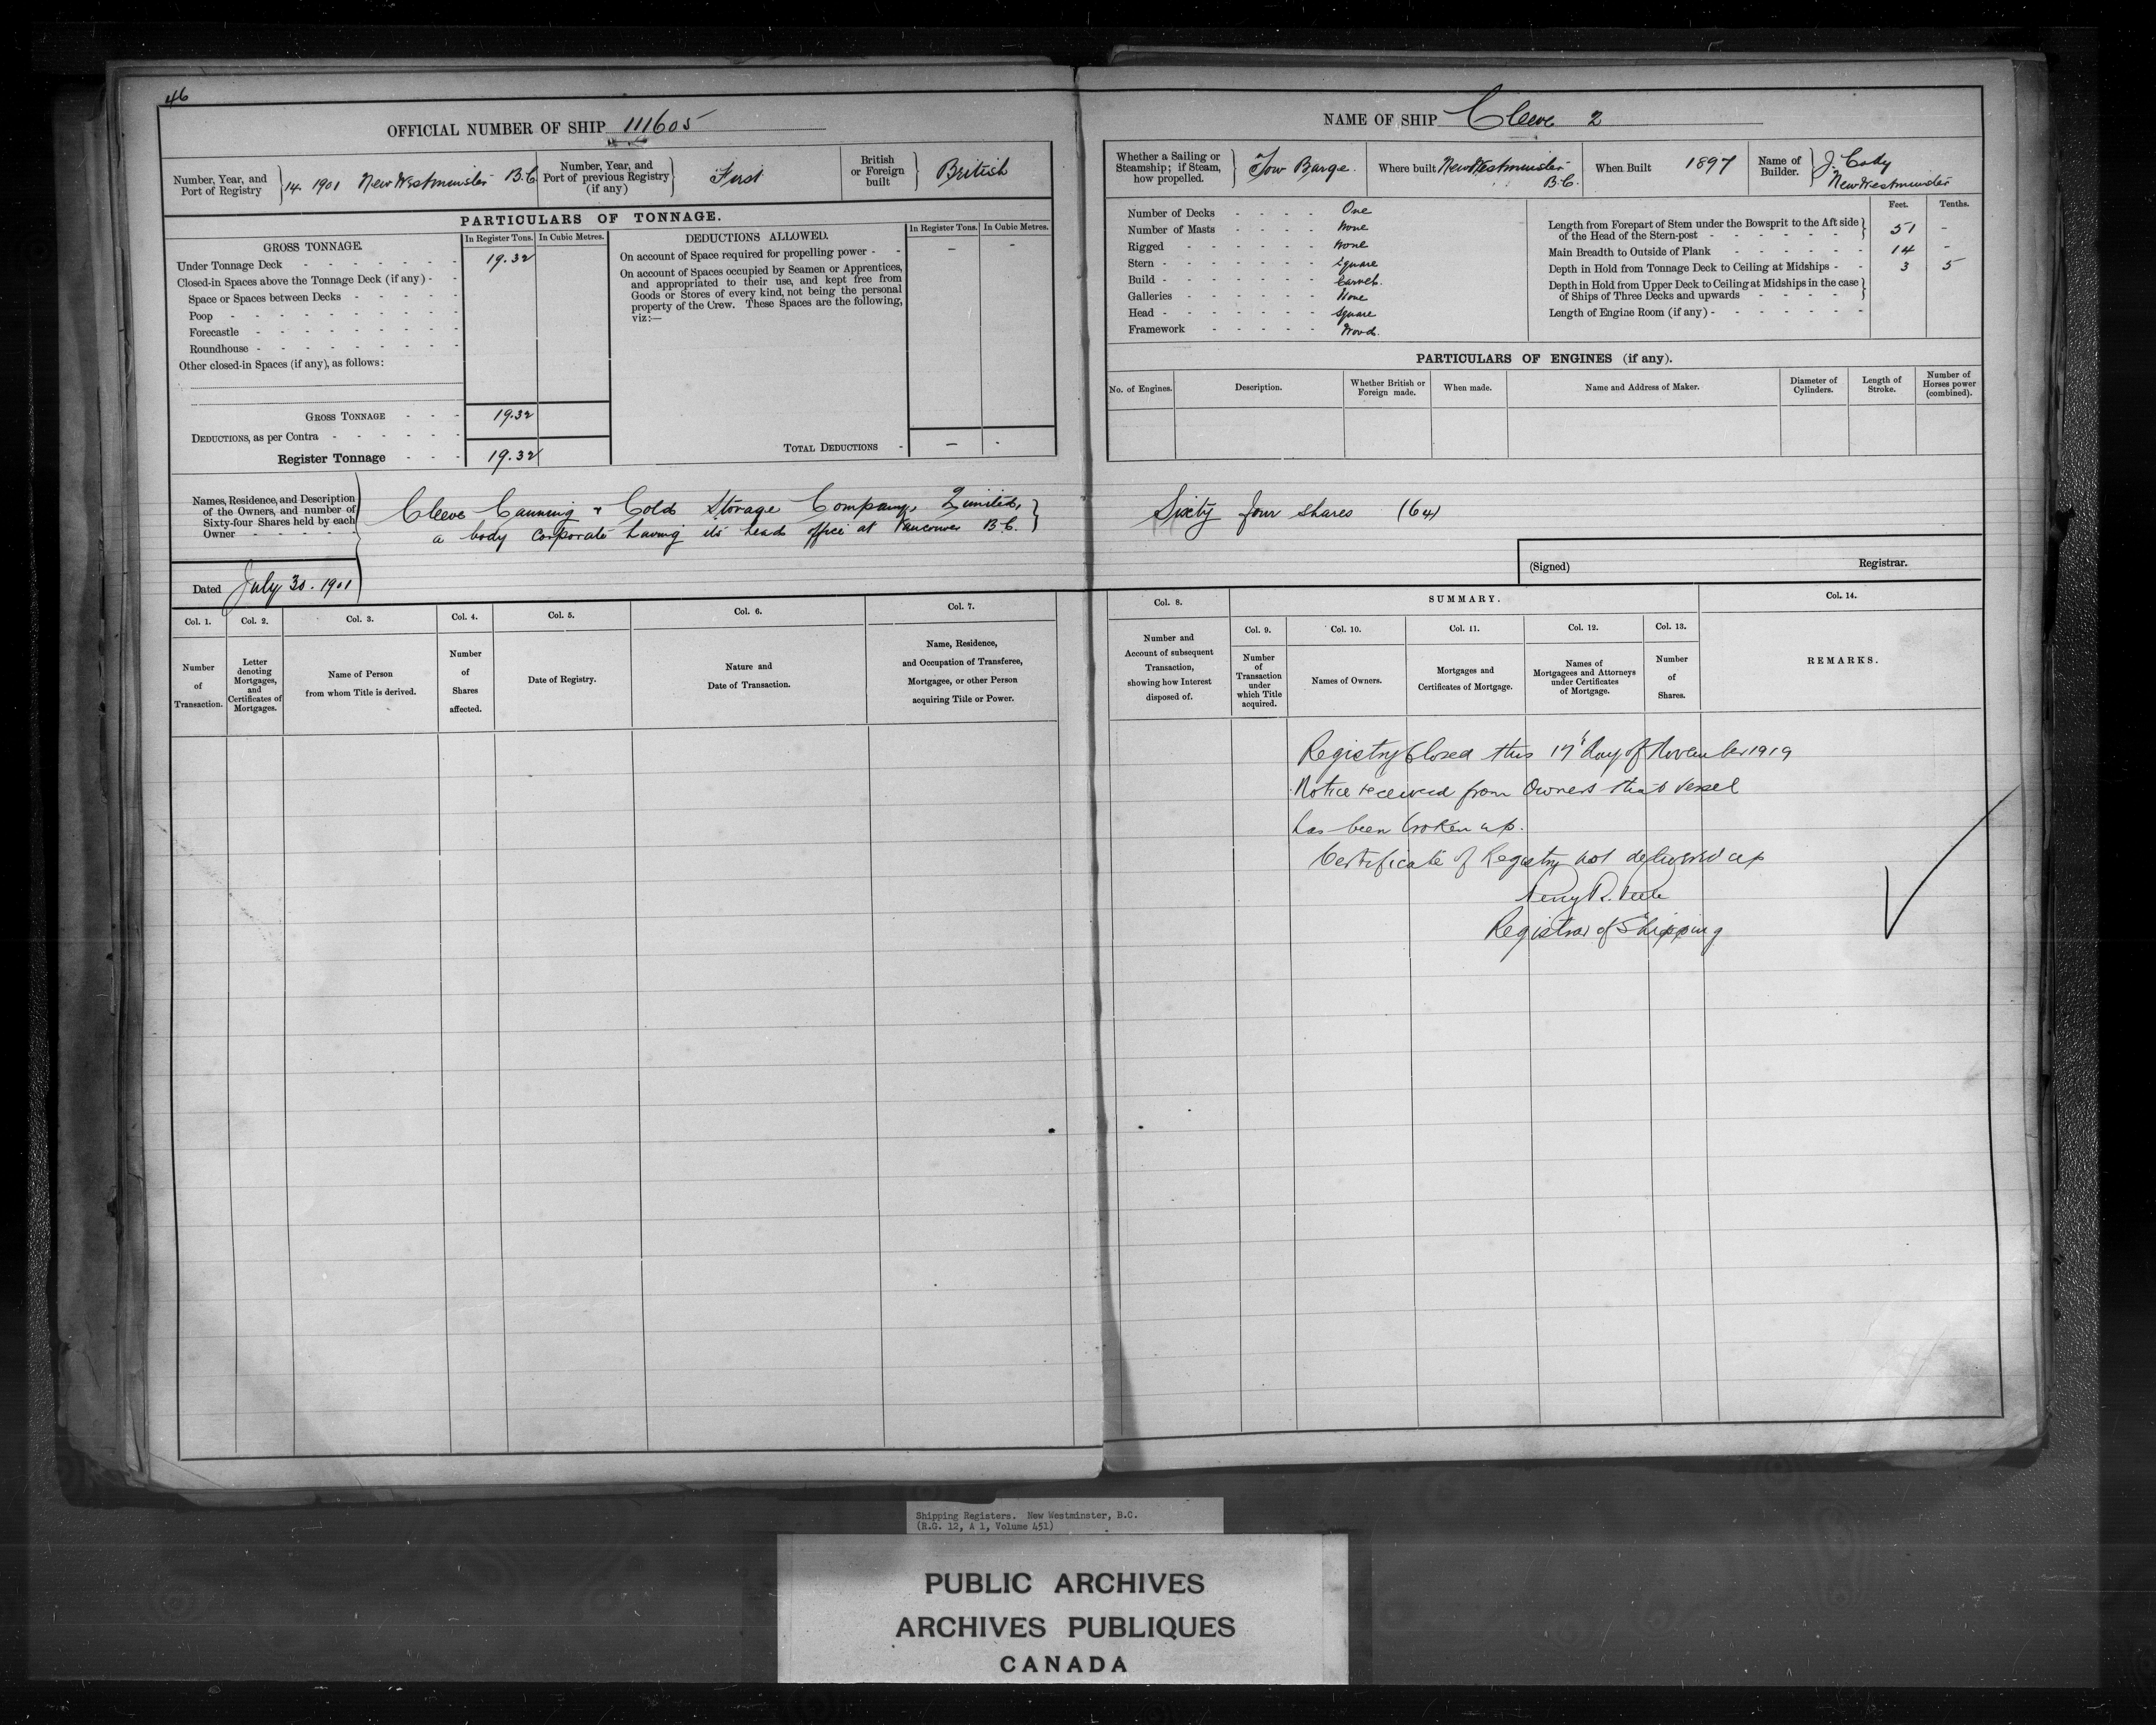 46
OFFICIAL NUMBER OF SHIP 111605
Number, Year, and Port of Registry } 14. 1901 New Westminster B.C.
Number, Year, and Port of previous Registry (if any) } First
British or Foreign built } British
PARTICULARS OF TONNAGE.
GROSS TONNAGE.
In Register Tons. In Cubic Metres.
Under Tonnage Deck - - - - - - 19.32
Closed-in Spaces above the Tonnage Deck (if any) - -
Space or Spaces between Decks - - - - -
Poop - - - - - - - - -
Forecastle - - - - - - - -
Roundhouse - - - - - - - -
Other closed-in Spaces (if any), as follows:
GROSS TONNAGE - - - 19.32
DEDUCTIONS, as per Contra - - - - - -
Register Tonnage - - - 19.32
DEDUCTIONS ALLOWED.
In Register Tons. In Cubic Metres.
On account of Space required for propelling power - - – -
On account of Spaces occupied by Seamen or Apprentices,
and appropriated to their use, and kept free from
Goods or Stores of every kind, not being the personal
property of the Crew. These Spaces are the following,
viz:—
TOTAL DEDUCTIONS - – -
Names, Residence, and Description
of the Owners, and number of
Sixty-four Shares held by each
Owner - - - - -
Cleeve Canning & Cold Storage Company Limited, }
a body corporate having its head office at Vancouver B.C.
Dated July 30. 1901
Col. 1. Col. 2. Col. 3. Col. 4. Col. 5. Col. 6. Col. 7.
Number of Transaction.
Letter denoting Mortgages, and Certificates of Mortgages.
Name of Person from whom Title is derived.
Number of Shares affected.
Date of Registry.
Nature and Date of Transaction.
Name, Residence, and Occupation of Transferee, Mortgagee, or other Person acquiring Title or Power.
NAME OF SHIP Cleeve 2
Whether a Sailing or Steamship; if Steam, how propelled. } Tow Barge.
Where built New Westminster B.C.
When Built 1897
Name of Builder. } J. Cody New Westminster
Number of Decks - - - - One
Number of Masts - - - - None
Rigged - - - - - - None
Stern - - - - - - - Square
Build - - - - - - - Carvel.
Galleries - - - - - - None
Head - - - - - - - Square
Framework - - - - - Wood.
Feet. Tenths.
Length from Forepart of Stem under the Bowsprit to the Aft side
of the Head of the Stern-post - - - - - - } 51 -
Main Breadth to Outside of Plank - - - - - - 14 -
Depth in Hold from Tonnage Deck to Ceiling at Midships - - 3 5
Depth in Hold from Upper Deck to Ceiling at Midships in the case
of Ships of Three Decks and upwards - - - - }
Length of Engine Room (if any) - - - - - - - -
PARTICULARS OF ENGINES (if any).
No. of Engines. Description. Whether British or Foreign made. When made. Name and Address of Maker. Diameter of Cylinders. Length of Stroke. Number of Horses power (combined).
Sixty four shares (64)
(Signed) Registrar.
Col. 8. SUMMARY. Col. 14.
Col. 9. Col. 10. Col. 11. Col. 12. Col. 13.
Number and Account of subsequent Transaction, showing how Interest disposed of.
Number of Transaction under which Title acquired.
Names of Owners.
Mortgages and Certificates of Mortgage.
Names of Mortgagees and Attorneys under Certificates of Mortgage.
Number of Shares.
REMARKS.
Registry Closed this 17th day of November 1919
Notice received from Owners that vessel
has been broken up.
Certificate of Registry not delivered up
Registrar of Shipping
Shipping Registers. New Westminster, B.C.
(R.G. 12, A 1, Volume 451)
PUBLIC ARCHIVES
ARCHIVES PUBLIQUES
CANADA